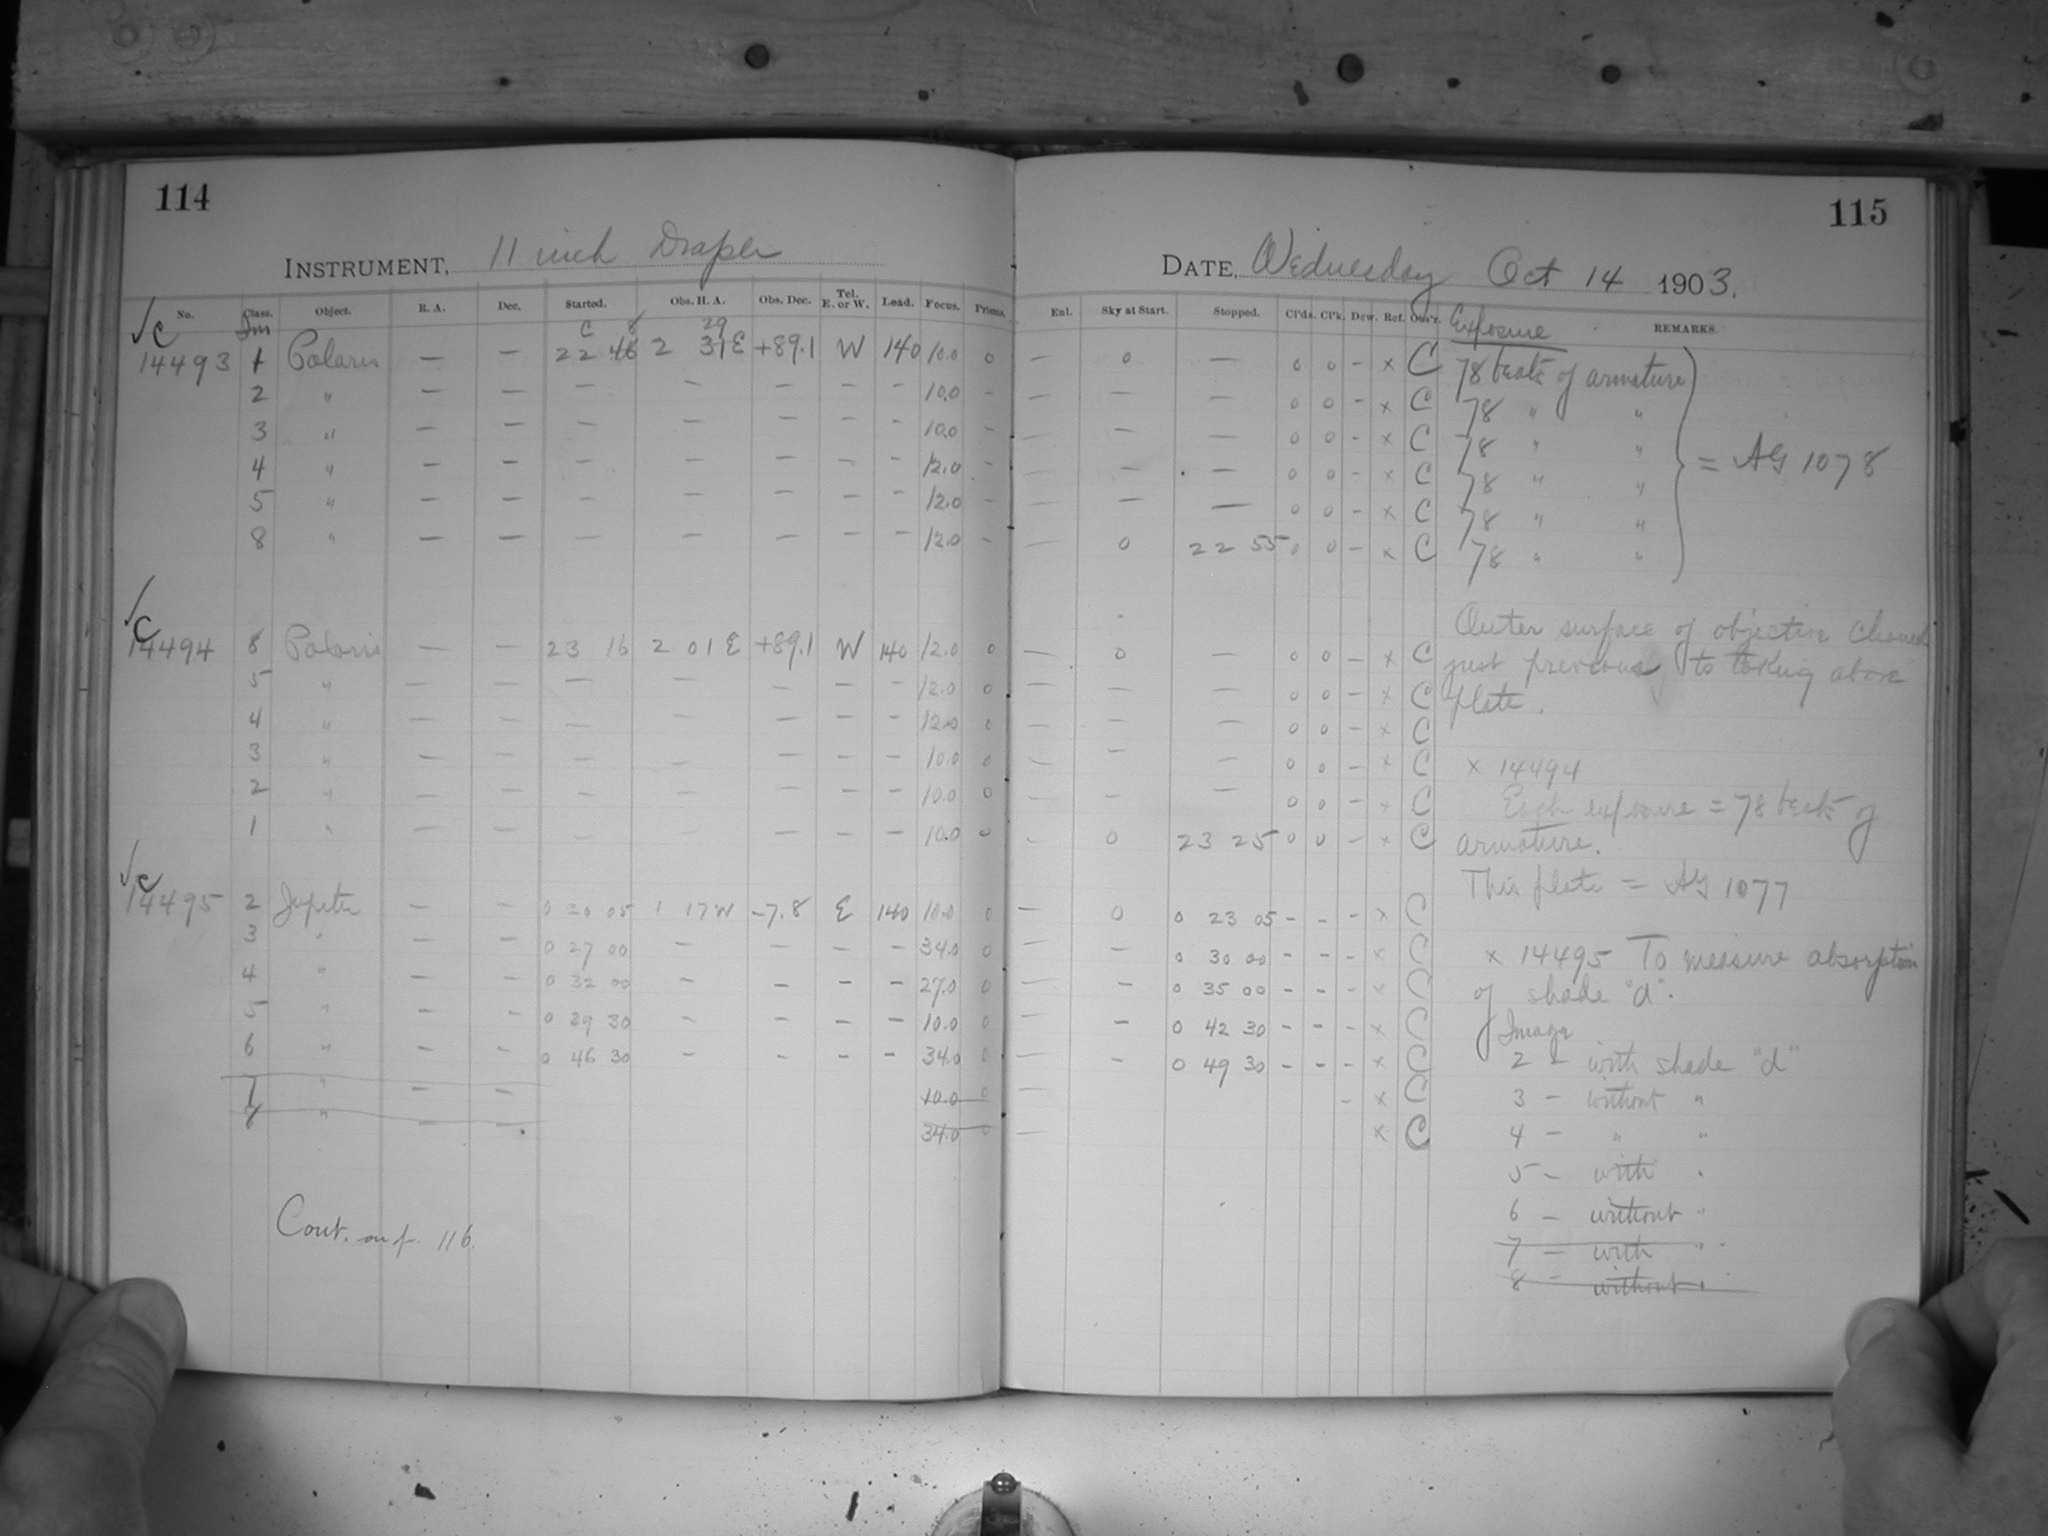 114
INSTRUMENT, 11 inch Draper
No. Class. Object. R. A. Dec. Started. Obs. H. A. Obs. Dec. Tel. E. or W. Lead. Focus. Prisms.
√c Im c 8 29
14493 1 Polaris — — 22 46 2 31 E +89.1 W 140 10.0 0
2 " — — — — — — — 10.0 –
3 " — — — — — — — 10.0 –
4 " — — — — — — — 12.0 –
5 " — — — — — — — 12.0 –
8 " — — — — — — — 12.0 –
√c
14494 8 Polaris — — 23 16 2 01 E +89.1 W 140 12.0 0
5 " — — — — — — — 12.0 0
4 " — — — — — — — 12.0 0
3 " — — — — — — — 10.0 0
2 " — — — — — — — 10.0 0
1 " — — — — — — — 10.0 0
√c
14495 2 Jupiter — — 0 20 05 1 17 W –7.8 E 140 10.0 0
3 " — — 0 27 00 — — — — 34.0 0
4 " — — 0 32 00 — — — — 27.0 0
5 " — — 0 39 30 — — — — 10.0 0
6 " — — 0 46 30 — — — — 34.0 0
7 " — — 10.0 0
8 " — — 34.0 0
Cont. on p. 116.
115
DATE, Wednesday Oct 14 1903.
Enl. Sky at Start. Stopped. Cl'ds. Cl'k. Dew. Ref. Obs'r. Exposure REMARKS.
— 0 — 0 0 – x C 78 beats of armature
— — — 0 0 – x C 78 " "
— — — 0 0 – x C 78 " "
— — — 0 0 – x C 78 " " = AG 1078
— — — 0 0 – x C 78 " "
— 0 22 55 0 0 – x C 78 " "
Outer surface of objective cleaned
— 0 — 0 0 – x C just previous to taking above
— — — 0 0 – x C plate.
— — — 0 0 – x C
— — — 0 0 – x C x 14494
— — — 0 0 – x C Each exposure = 78 beats of
— 0 23 25 0 0 – x C armature.
This plate = AG 1077
— 0 0 23 05 – – – x C
— — 0 30 00 – – – x C x 14495 To measure absorption
— — 0 35 00 – – – x C of shade "d".
— — 0 42 30 – – – x C Image
— — 0 49 30 – – – x C 2 – with shade "d"
— – x C 3 – without "
— x C 4 – " "
5 – with "
6 – without "
7 – with "
8 – without "